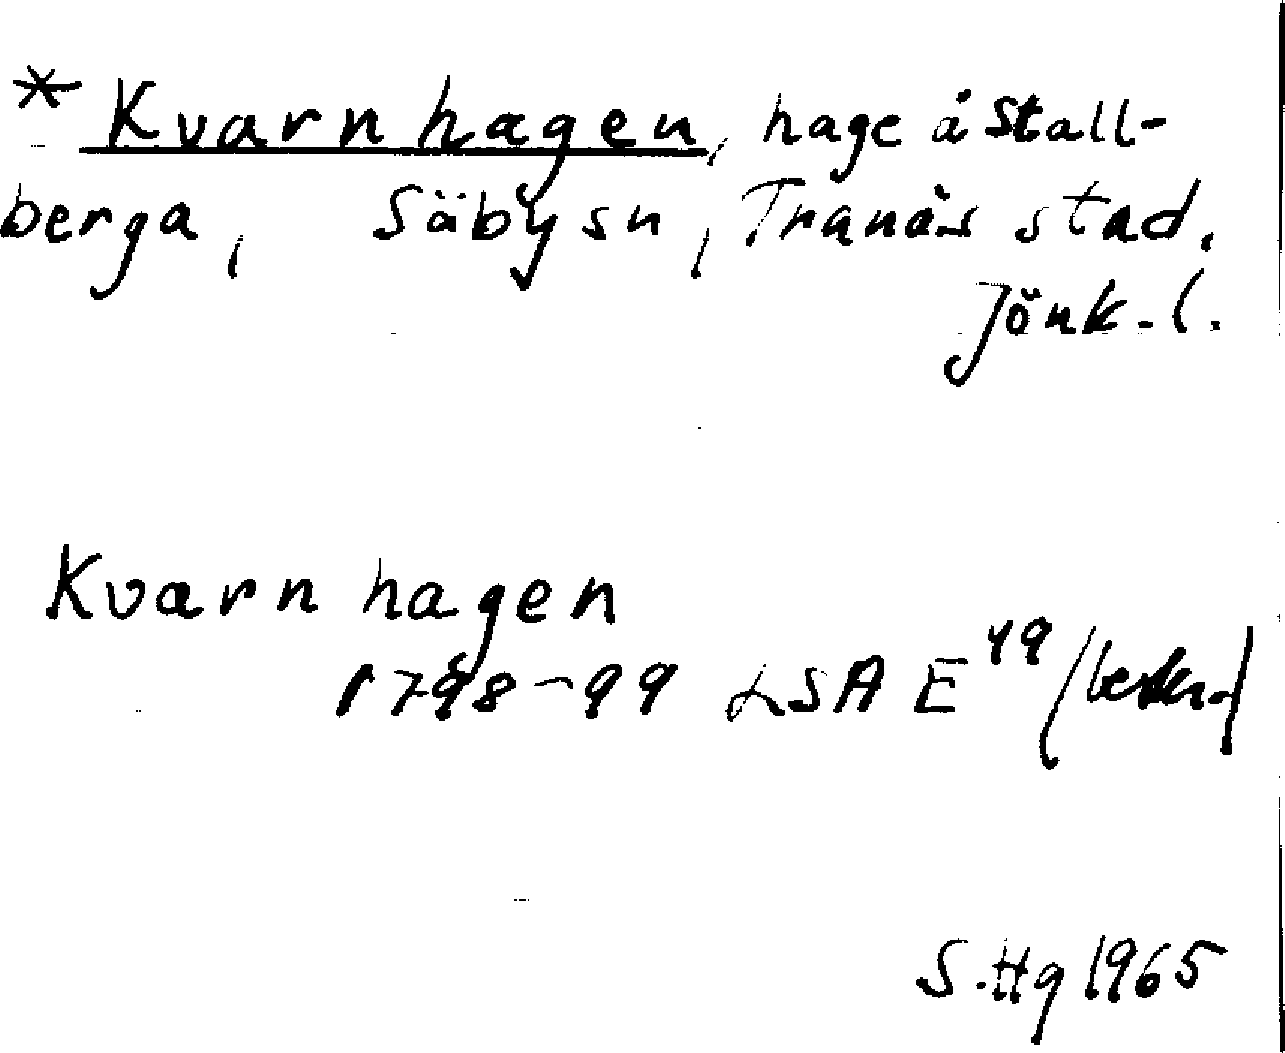 * Kvarnhagen, hage å Stall-
berga, Säby sn, Tranås stad.
Jönk. l.
Kvarnhagen
1798-99 LSA E 49 /beskr./
S.Hg 1965